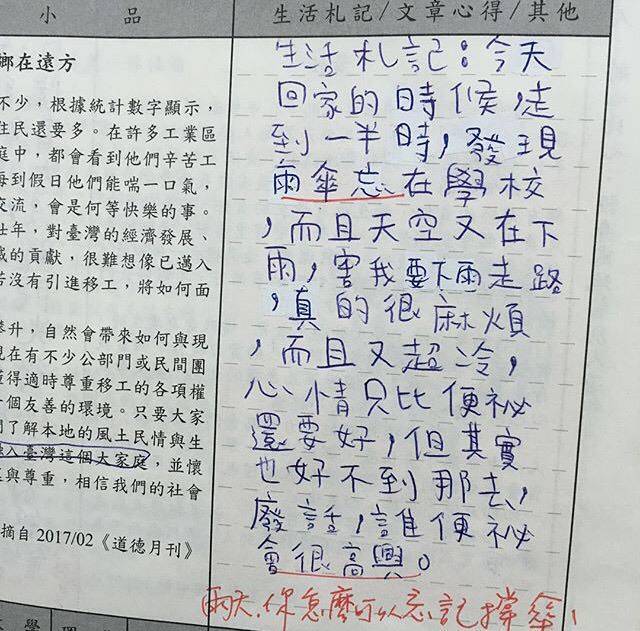 小 品
鄉在遠方
不少，根據統計數字顯示，
住民還要多。在許多工業區
庭中，都會看到他們辛苦工
每到假日他們能喘一口氣，
交流，會是何等快樂的事。
壯年，對臺灣的經濟發展、
的貢獻，很難想像已邁入
若沒有引進移工，將如何面
升，自然會帶來如何與現
現在有不少公部門或民間團
懂得適時尊重移工的各項權
一個友善的環境。只要大家
了解本地的風土民情與生
入臺灣這個大家庭，並懷
與尊重，相信我們的社會
摘自 2017/02《道德月刊》
生活札記/文章心得/其他
生活札記：今天
回家的時候，走
到一半時，發現
雨傘忘在學校
，而且天空又在下
雨，害我要下雨走路
，真的很麻煩
，而且又超冷，
心情只比便祕
還要好，但其實
也好不到那去，
廢話，誰便祕
會很高興。
雨天，你怎麼可以忘記撐傘！